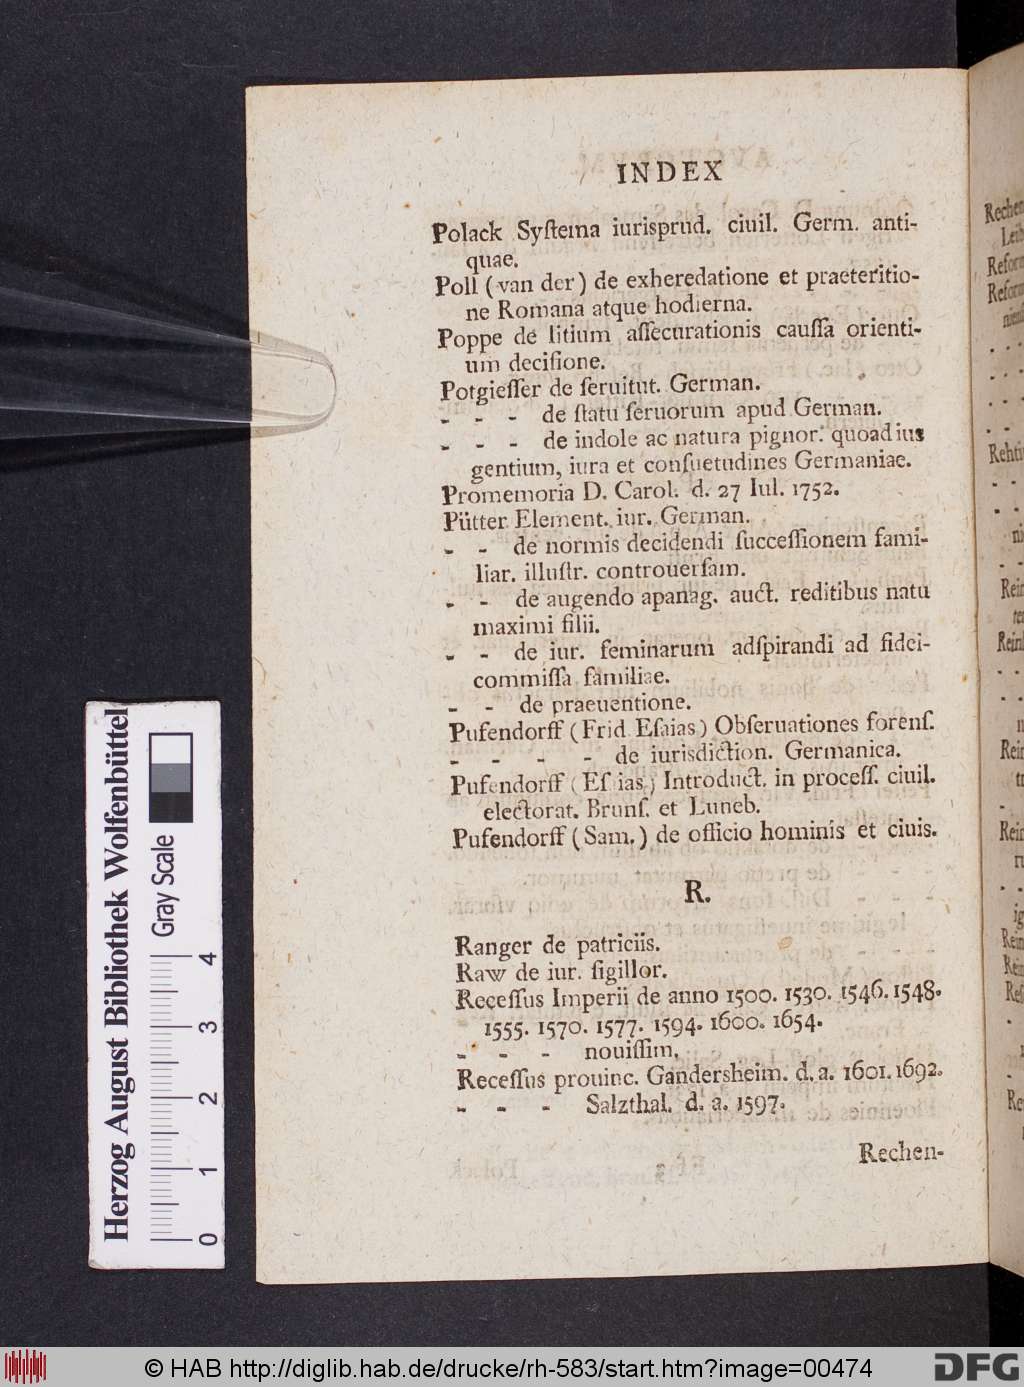 INDEX
Polack Syſtema iurisprud. ciuil. Germ. anti-
quae.
Poll (van der) de exheredatione et praeteritio-
ne Romana atque hodierna.
Poppe de litium aſſecurationis cauſſa orienti-
um deciſione.
Potgieſſer de ſeruitut. German.
- - - de ſtatu ſeruorum apud German.
- - - de indole ac natura pignor. quoad ius
gentium, iura et conſuetudines Germaniae.
Promemoria D. Carol. d. 27 Iul. 1752.
Pütter Element. iur. German.
- - de normis decidendi ſucceſſionem fami-
liar. illuſtr. controuerſam.
- - de augendo apanag. auct. reditibus natu
maximi filii.
- - de iur. feminarum adſpirandi ad fidei-
commiſſa familiae.
- - de praeuentione.
Pufendorff (Frid Eſaias) Obſeruationes forenſ.
- - - - de iurisdiction. Germanica.
Pufendorff (Eſ ias) Introduct. in proceſſ. ciuil.
electorat. Brunſ. et Luneb.
Pufendorff (Sam.) de officio hominis et ciuis.
R.
Ranger de patriciis.
Raw de iur. ſigillor.
Receſſus Imperii de anno 1500. 1530. 1546. 1548.
1555. 1570. 1577. 1594. 1600. 1654.
- - - nouiſſim.
Receſſus prouinc. Gandersheim. d. a. 1601. 1692.
- - - Salzthal. d. a. 1597.
Rechen-
Herzog August Bibliothek Wolfenbüttel
Gray Scale
0 1 2 3 4
© HAB http://diglib.hab.de/drucke/rh-583/start.htm?image=00474
DFG